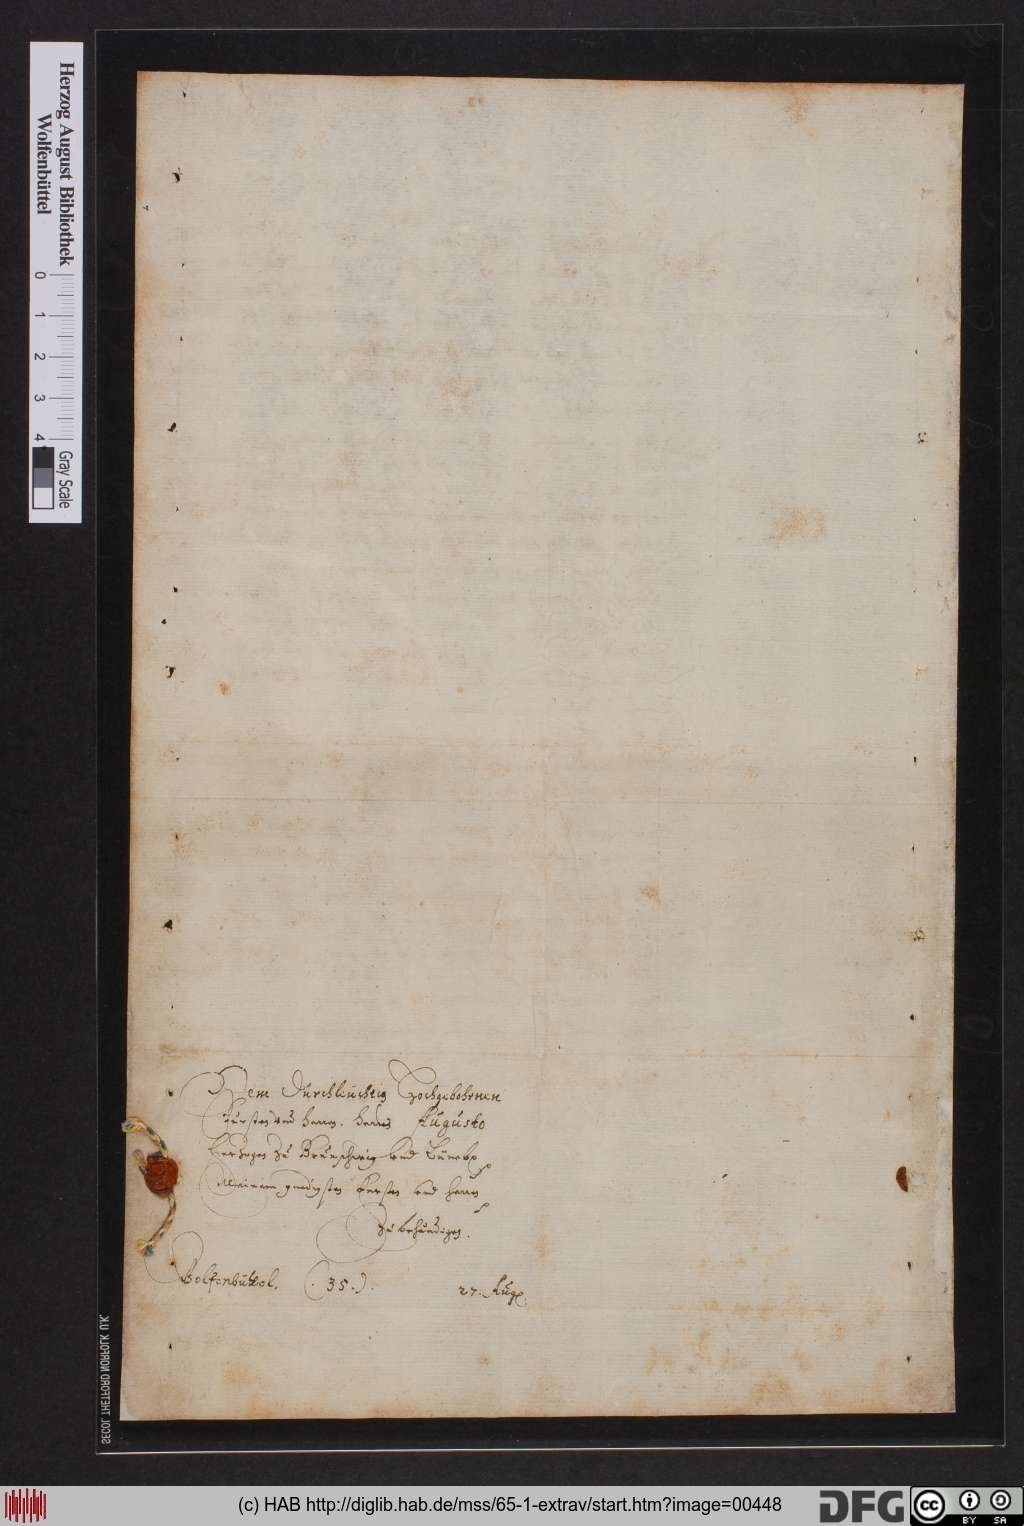 Herzog August Bibliothek
Wolfenbüttel
0 1 2 3 4
Gray Scale
Dem Durchleuchtig Hochgebohrnen
Fursten und Herrn. Herrn Augusto
Herzogen zu Brunschwig und Luneb.
Meinem gnedigsten Fursten und Herrn
zu behendigen.
Wolfenbüttel. (. 35 .).
27. Aug.
SECOL THETFORD NORFOLK U.K.
(c) HAB http://diglib.hab.de/mss/65-1-extrav/start.htm?image=00448
DFG
cc BY SA